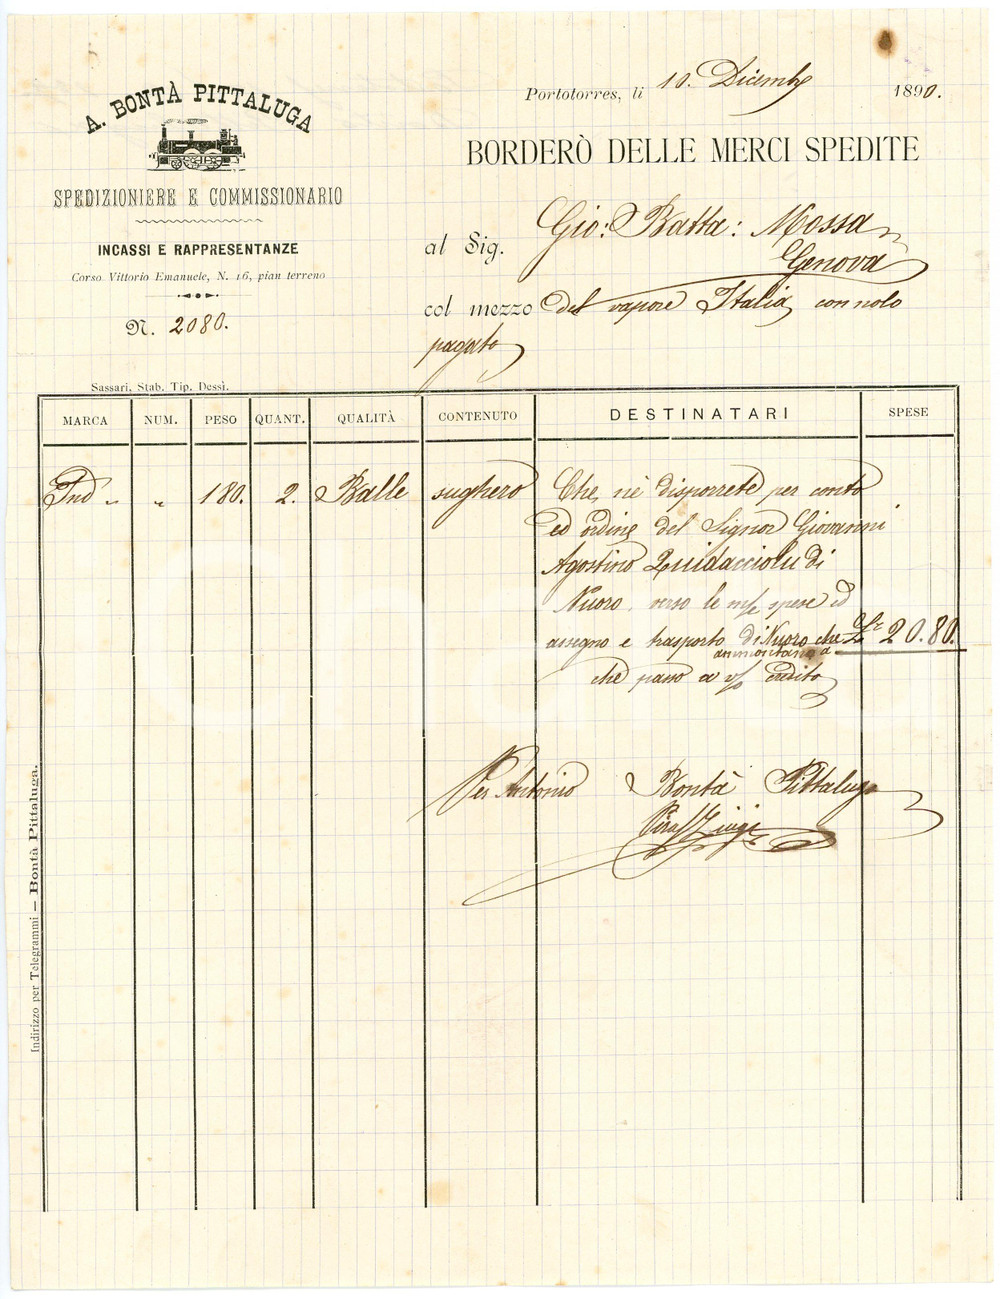 A. BONTÀ PITTALUGA
SPEDIZIONIERE E COMMISSIONARIO
INCASSI E RAPPRESENTANZE
Corso Vittorio Emanuele, N. 16, pian terreno
N. 2080.
Sassari, Stab. Tip. Dessì.
Portotorres, li 10. Dicembre 1890.
BORDERÒ DELLE MERCI SPEDITE
al Sig. Gio: Batta: Mossa
Genova
col mezzo del vapore Italia con nolo
pagato
MARCA NUM. PESO QUANT. QUALITÀ CONTENUTO DESTINATARI SPESE
Ind° " " 180. 2. Balle sughero Che, nè disporrete per conto
ed ordine del Signor Giovanni
Agostino Guidacciolu di
Nuoro, verso le spese ed
assegno e trasporto di Nuoro che 20.80.
ammontano a
che passo a v/o credito
Per Antonio Bontà Pittaluga
Luigi
Indirizzo per Telegrammi — Bontà Pittaluga.